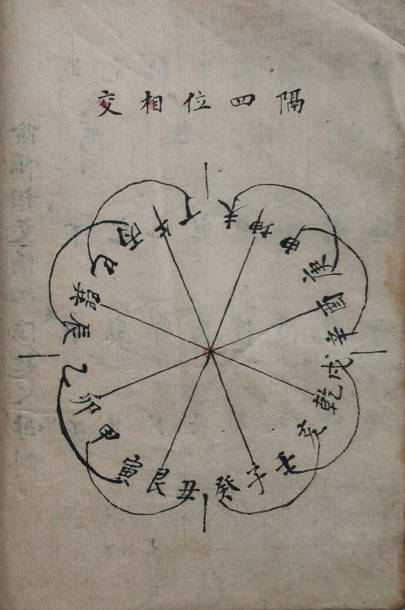 隔四位相交
丁未坤申庚酉辛戌乾亥壬子癸丑艮寅甲卯乙辰巽巳丙午